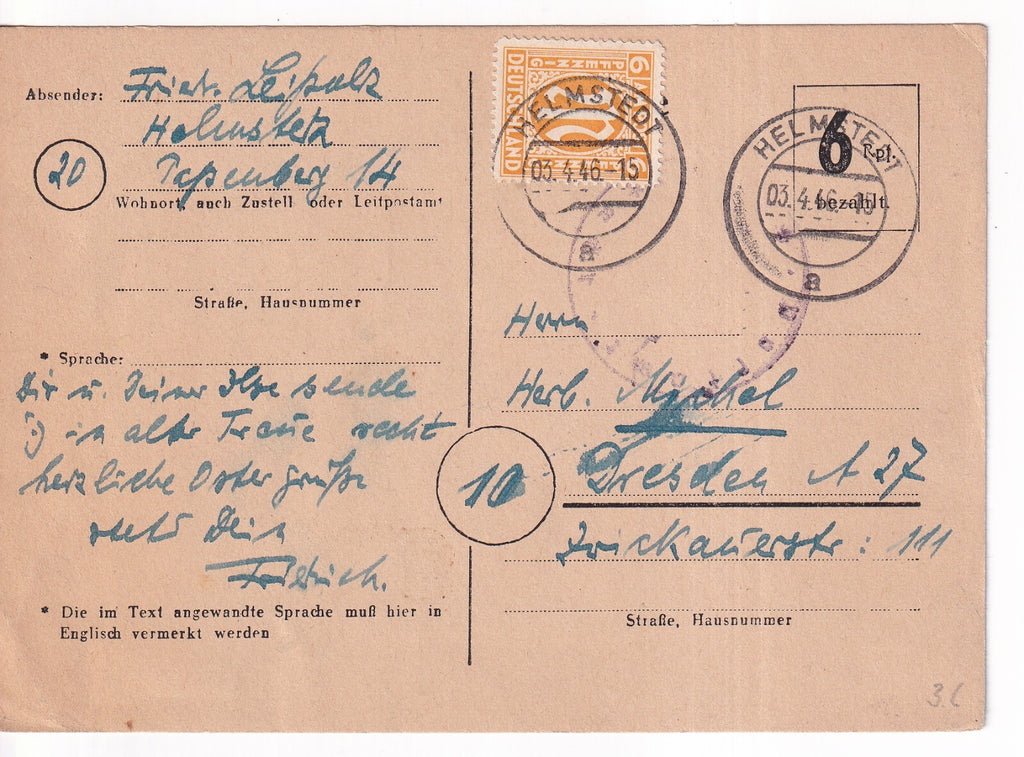 Absender: Friedr. Leipold
Helmstedt
20
Papenberg 14
Wohnort, auch Zustell oder Leitpostamt
Straße, Hausnummer
* Sprache:
Dir u. Deiner Ilse sende
in alter Treue recht
herzliche Ostergrüße
stets Dein
Friedrich.
* Die im Text angewandte Sprache muß hier in
Englisch vermerkt werden
6 PFENNIG 6
DEUTSCHLAND
HELMSTEDT
03.4.46.-15
a
6 Rpf.
bezahlt.
HELMSTEDT
03.4.46.-15
a
Herrn
Herb. Michel
10
Dresden A 27
Zwickauerstr: 111
Straße, Hausnummer
3.6